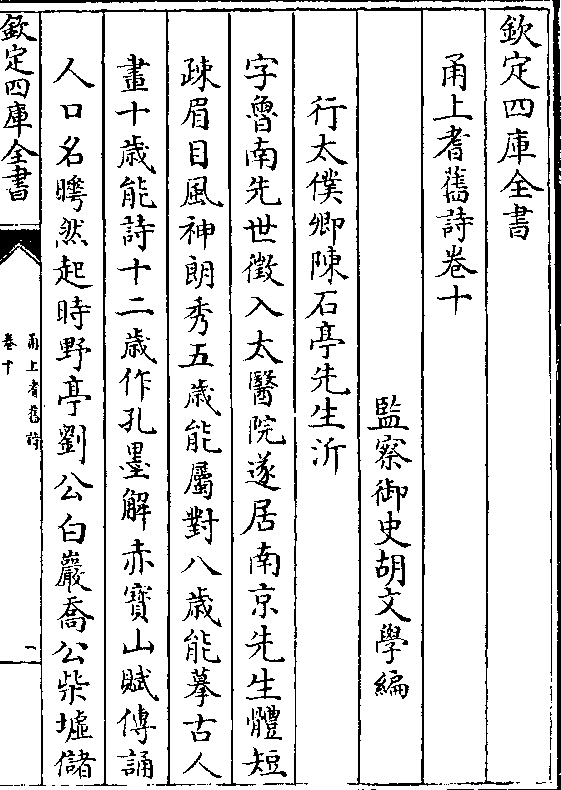 欽定四庫全書
甬上耆舊詩卷十
監察御史胡文學編
行太僕卿陳石亭先生沂
字魯南先世徵入太醫院遂居南京先生體短
疎眉目風神朗秀五歲能屬對八歲能摹古人
畫十歲能詩十二歲作孔墨解赤寶山賦傳誦
人口名曄然起時野亭劉公白巖喬公柴墟儲
欽定四庫全書
甬上耆舊詩
卷十
一